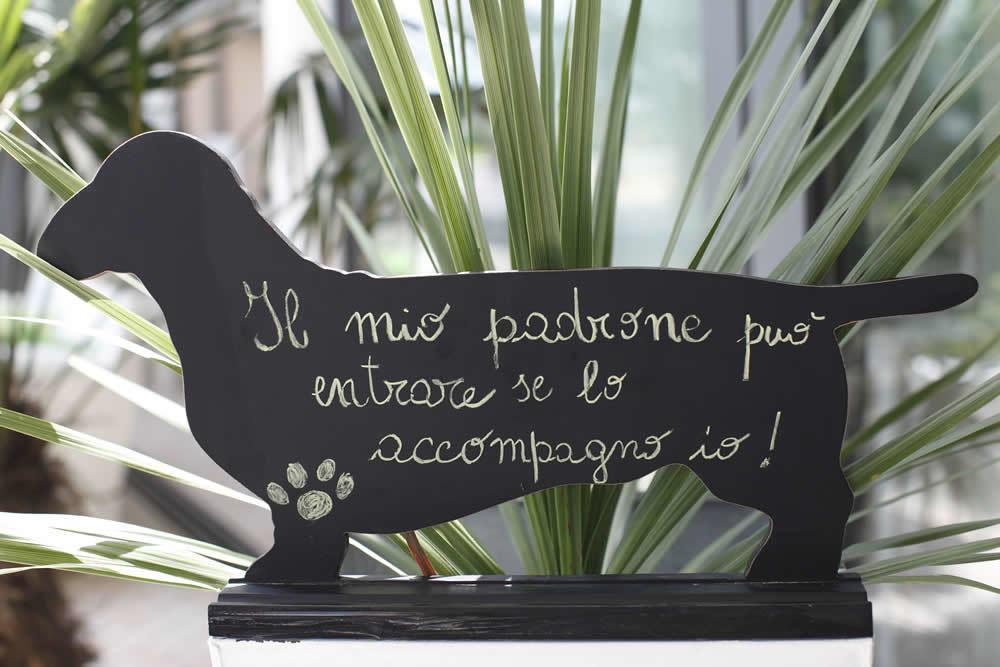 Il mio padrone può
entrare se lo
accompagno io!